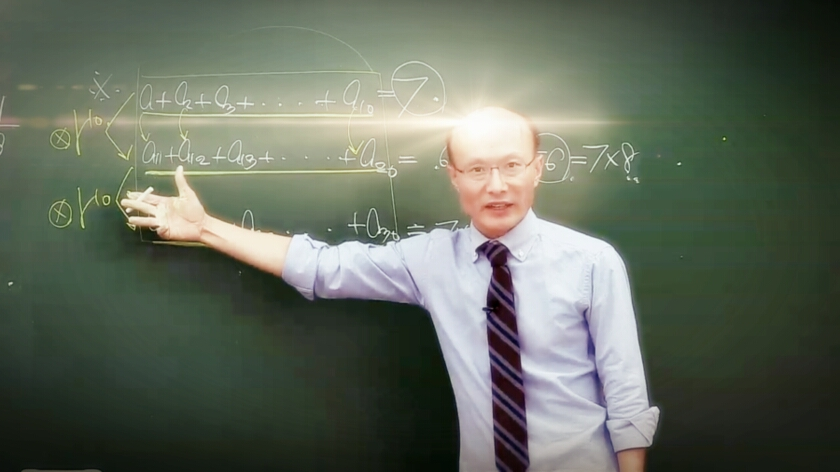 ※ a+a₂+a₃+⋯⋯+a₁₀=7.
⊗r¹⁰
a₁₁+a₁₂+a₁₃+⋯⋯+a₂₀= 6 56=7×8
⊗r¹⁰
a ⋯⋯+a₃₀=7